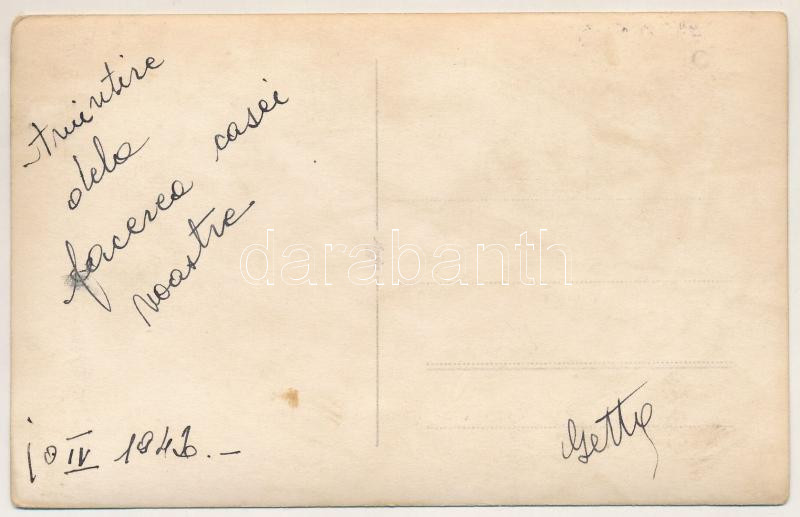 Amintire
dela
facerea casei
voastre
10 IV 194
Getta
darabanth